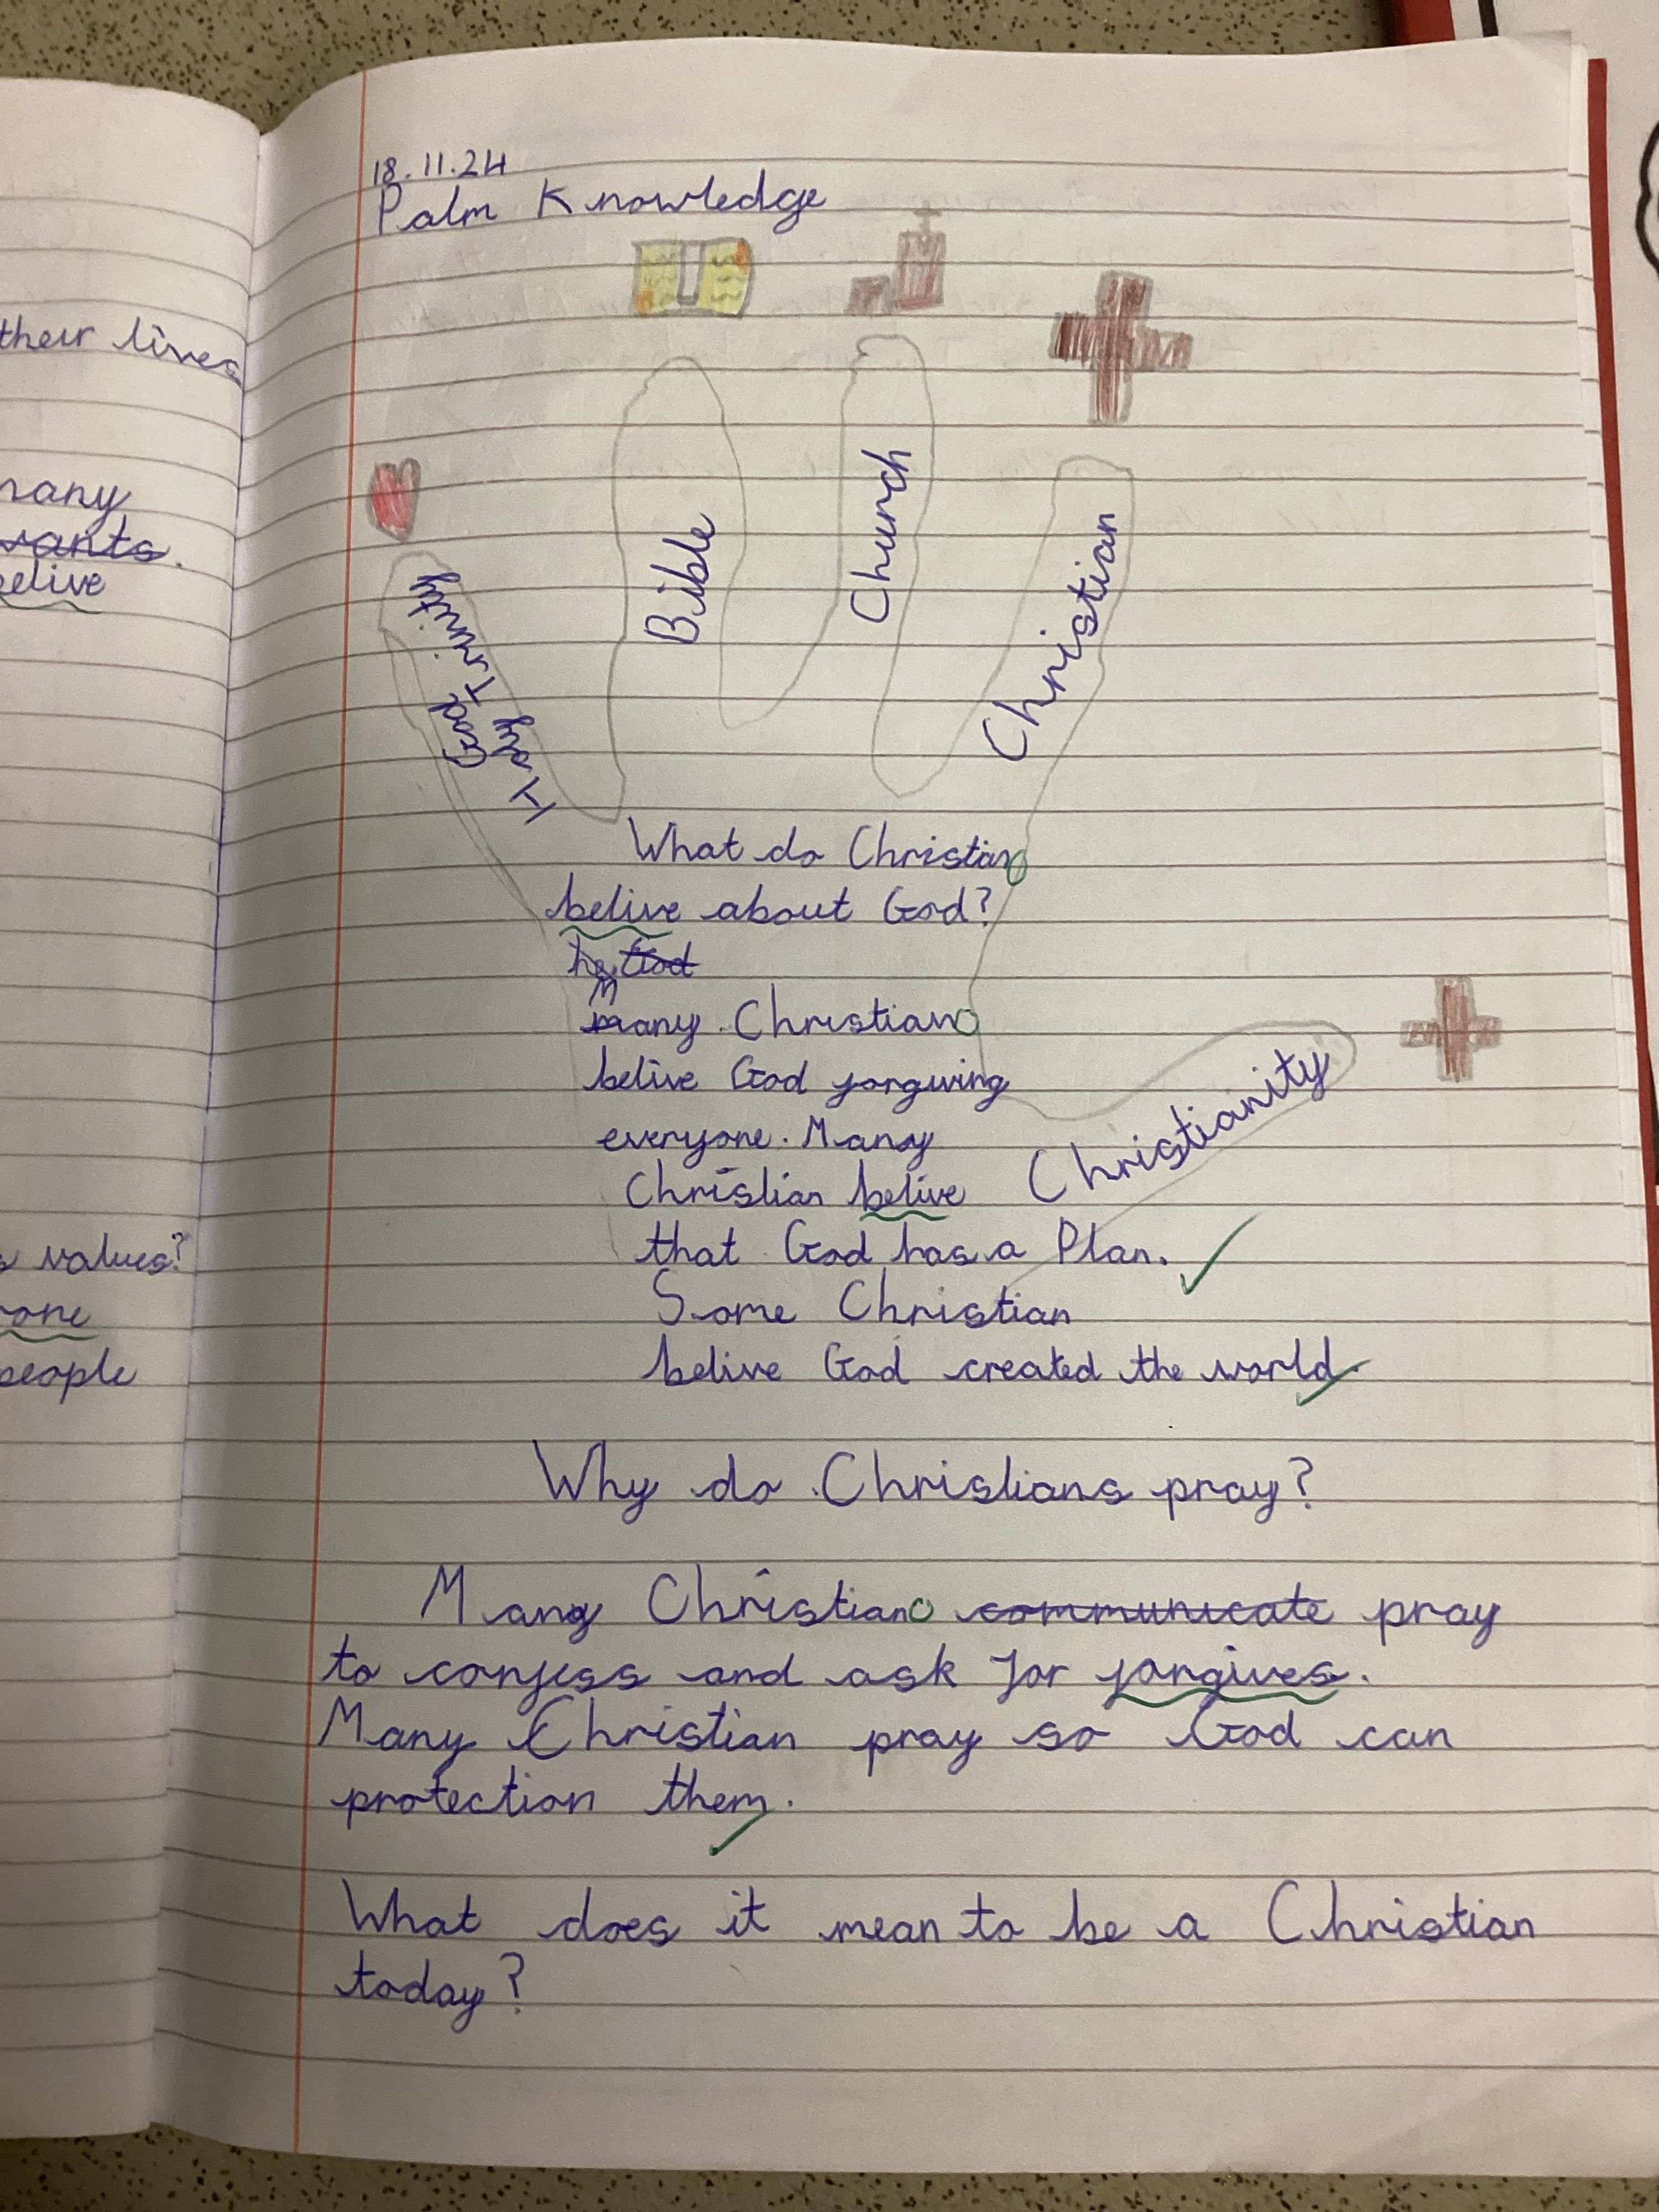 their lives
many
wants.
belive
s values?
one
people
18.11.24
Palm Knowledge
Holy Trinity
God
Bible
Church
Christian
Christianity
What do Christian
belive about God?
he God
Many Christian
belive God forgiving
everyone. Many
Christian belive
that God has a Plan.
Some Christian
belive God created the world
Why do Christians pray?
Many Christian communicate pray
to confess and ask for forgives.
Many Christian pray so God can
protection them.
What does it mean to be a Christian
today?